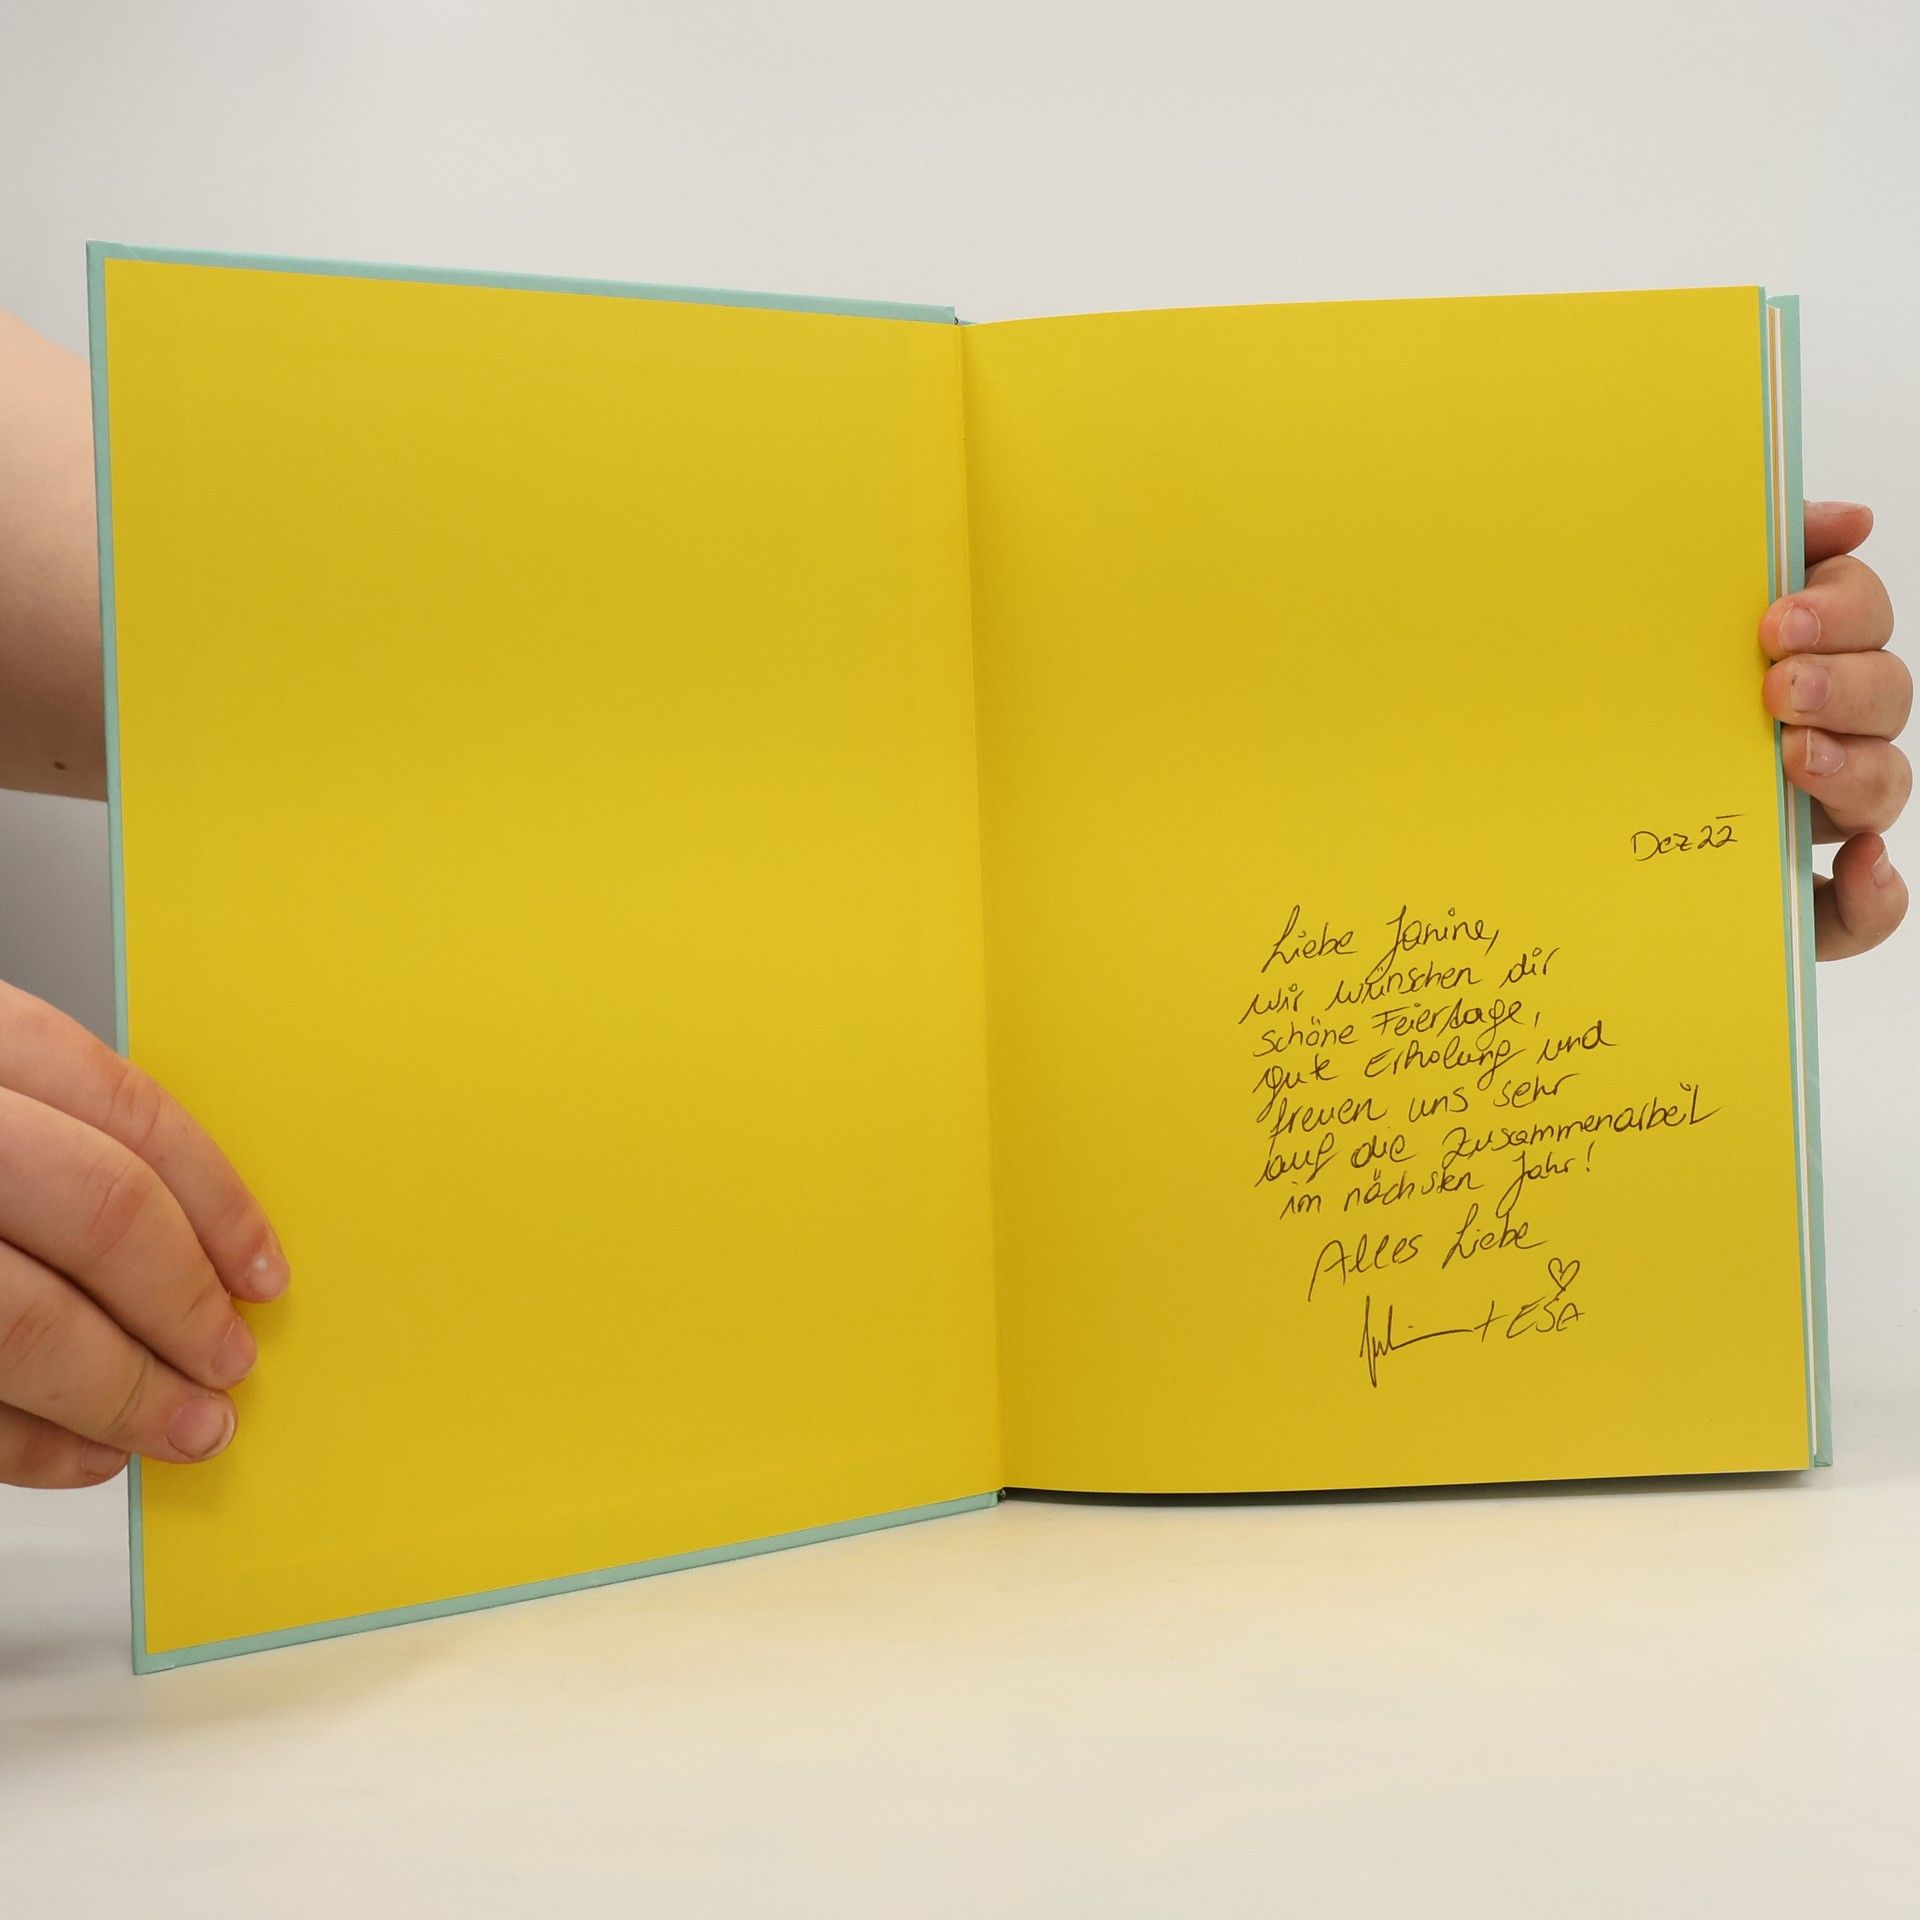 Dez 22
Liebe Janine,
wir wünschen dir
schöne Feiertage,
gute Erholung und
freuen uns sehr
auf die Zusammenarbeit
im nächsten Jahr!
Alles Liebe
+ ESA